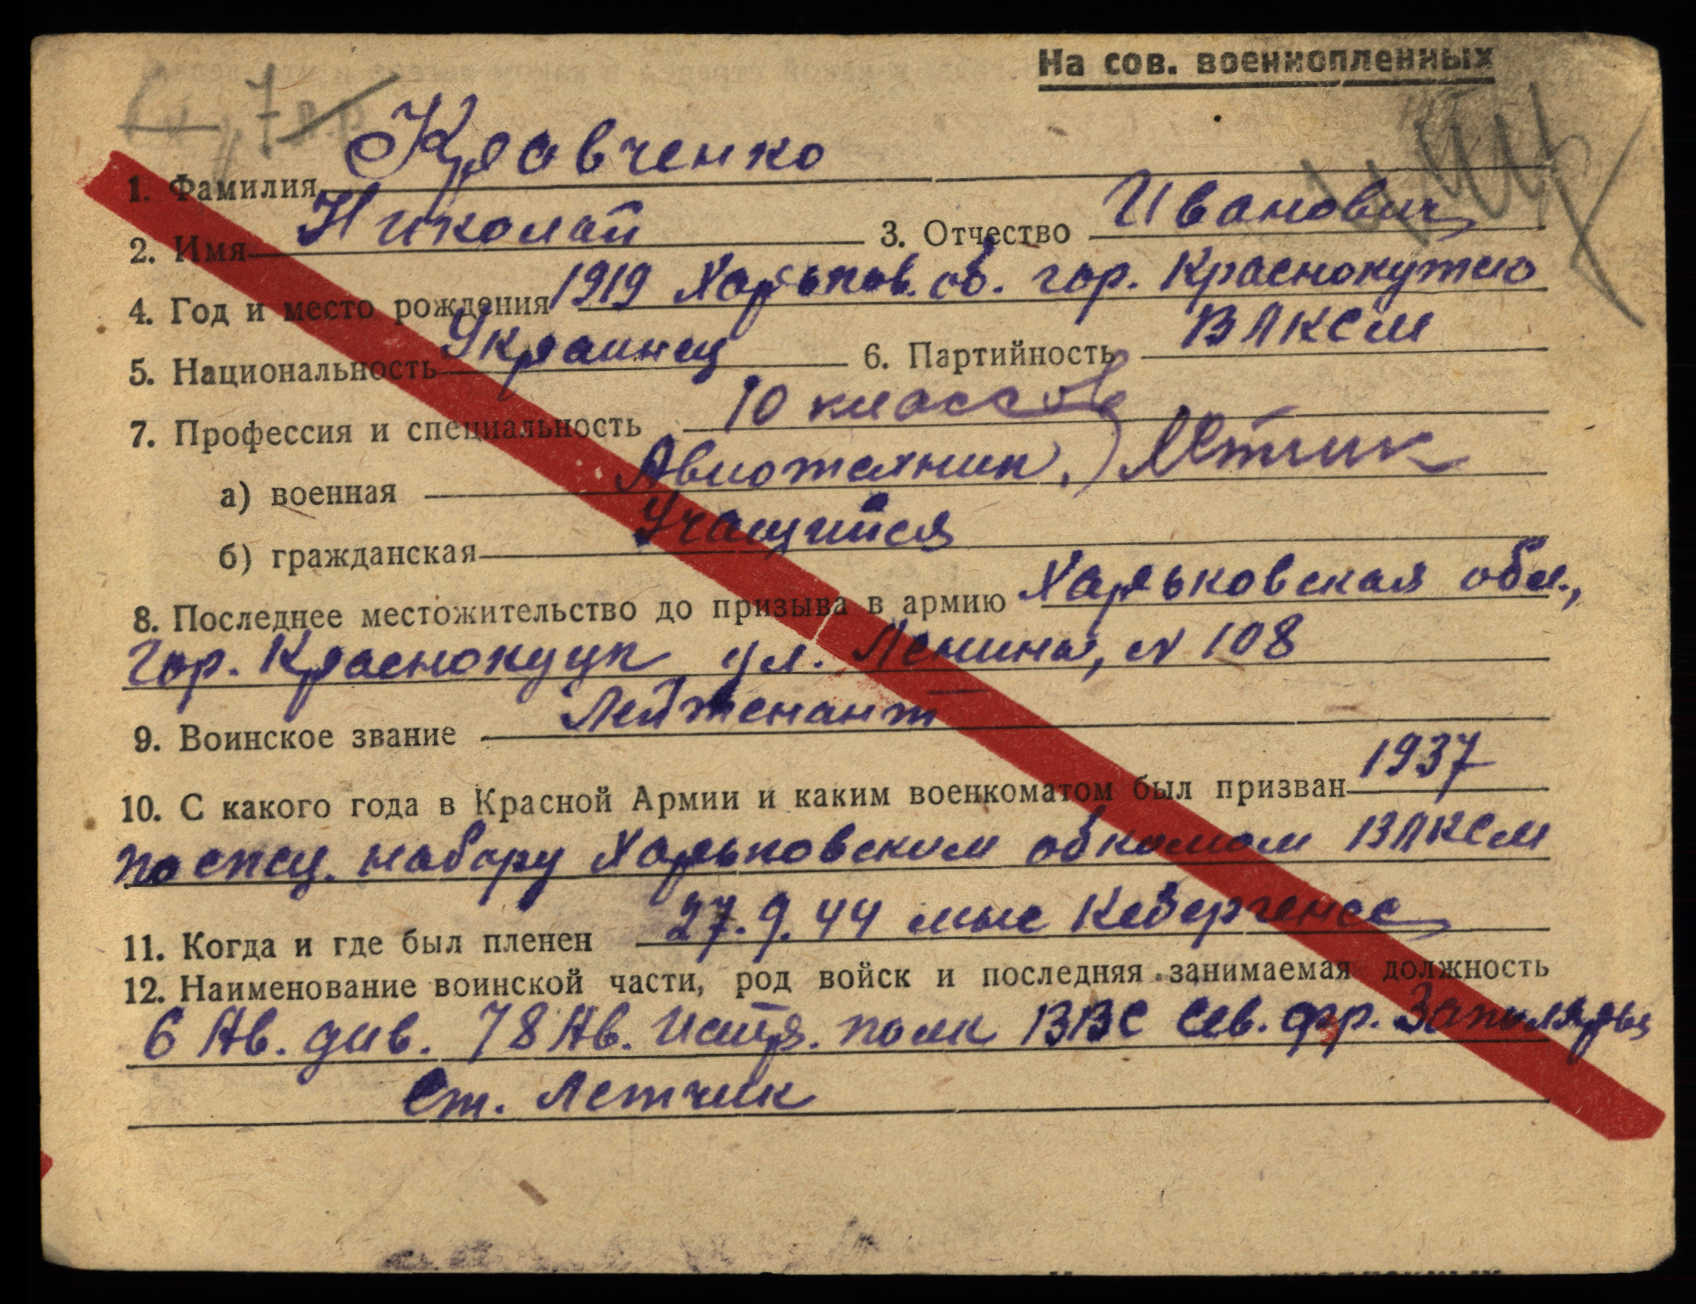 На сов. военнопленных
1. Фамилия Кравченко
2. Имя Николай 3. Отчество Иванович
4. Год и место рождения 1919 Харьков. об. гор. Краснокутск
5. Национальность Украинец 6. Партийность ВЛКСМ
7. Профессия и специальность 10 классов
а) военная Авиотехник, Лётчик
б) гражданская Учащийся
8. Последнее местожительство до призыва в армию Харьковская обл.,
гор. Краснокуцк ул. Ленина, № 108
9. Воинское звание Лейтенант
10. С какого года в Красной Армии и каким военкоматом был призван 1937
по спец. набору Харьковским обкомом ВЛКСМ
11. Когда и где был пленен 27.9.44 мыс Кибергенес
12. Наименование воинской части, род войск и последняя занимаемая должность
6 Ав. див. 78 Ав. Истр. полк ВВС Сев. фр. Заполярья
Ст. Летчик